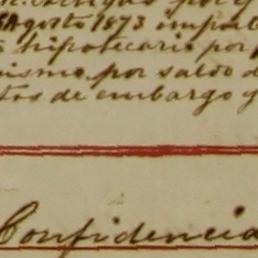 Agosto 1873 impor
hipotecario por
mismo por saldo d
tos de embargo y
Confidencia